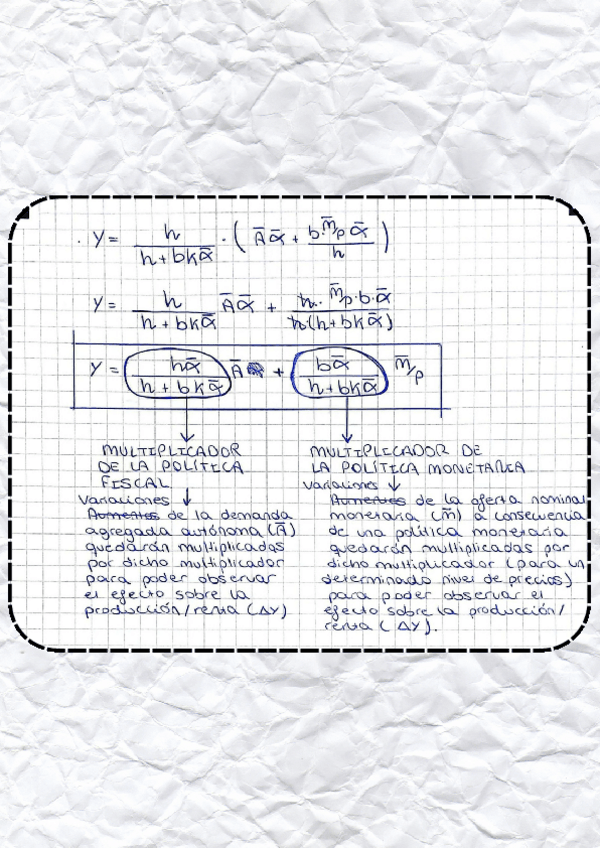 . Y = h / (h + bkᾱ) · ( Āᾱ + b·M̄/P ᾱ / h )
Y = h / (h + bkᾱ) Āᾱ + h·M̄/P·b·ᾱ / h(h + bkᾱ)
Y = hᾱ / (h + bkᾱ) Ā + bᾱ / (h + bkᾱ) M̄/P
MULTIPLICADOR
DE LA POLÍTICA
FISCAL
Variaciones ↓
Aumentos de la demanda
agregada autónoma (Ā)
quedarán multiplicadas
por dicho multiplicador
para poder observar
el efecto sobre la
producción/renta (ΔY)
MULTIPLICADOR DE
LA POLÍTICA MONETARIA
Variaciones ↓
Aumentos de la oferta nominal
monetaria (M̄) a consecuencia
de una política monetaria
quedarán multiplicadas por
dicho multiplicador (para un
determinado nivel de precios)
para poder observar el
efecto sobre la producción/
renta (ΔY).